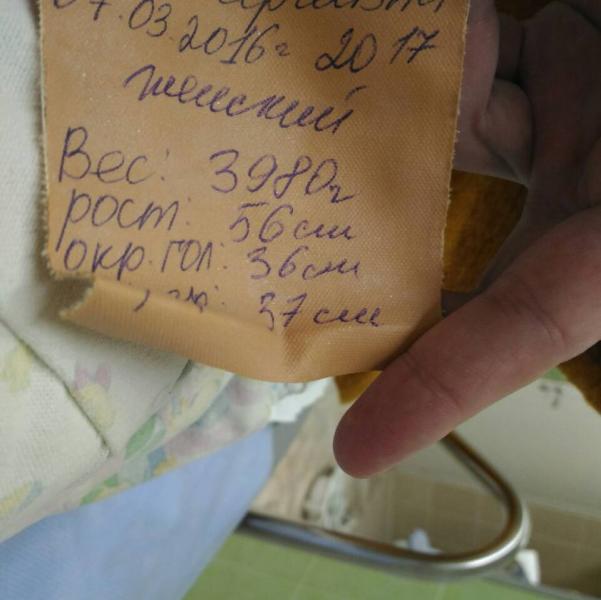 07.03.2016г 20 17
женский
Вес: 3980г
рост: 56см
окр.гол: 36см
гр: 37см